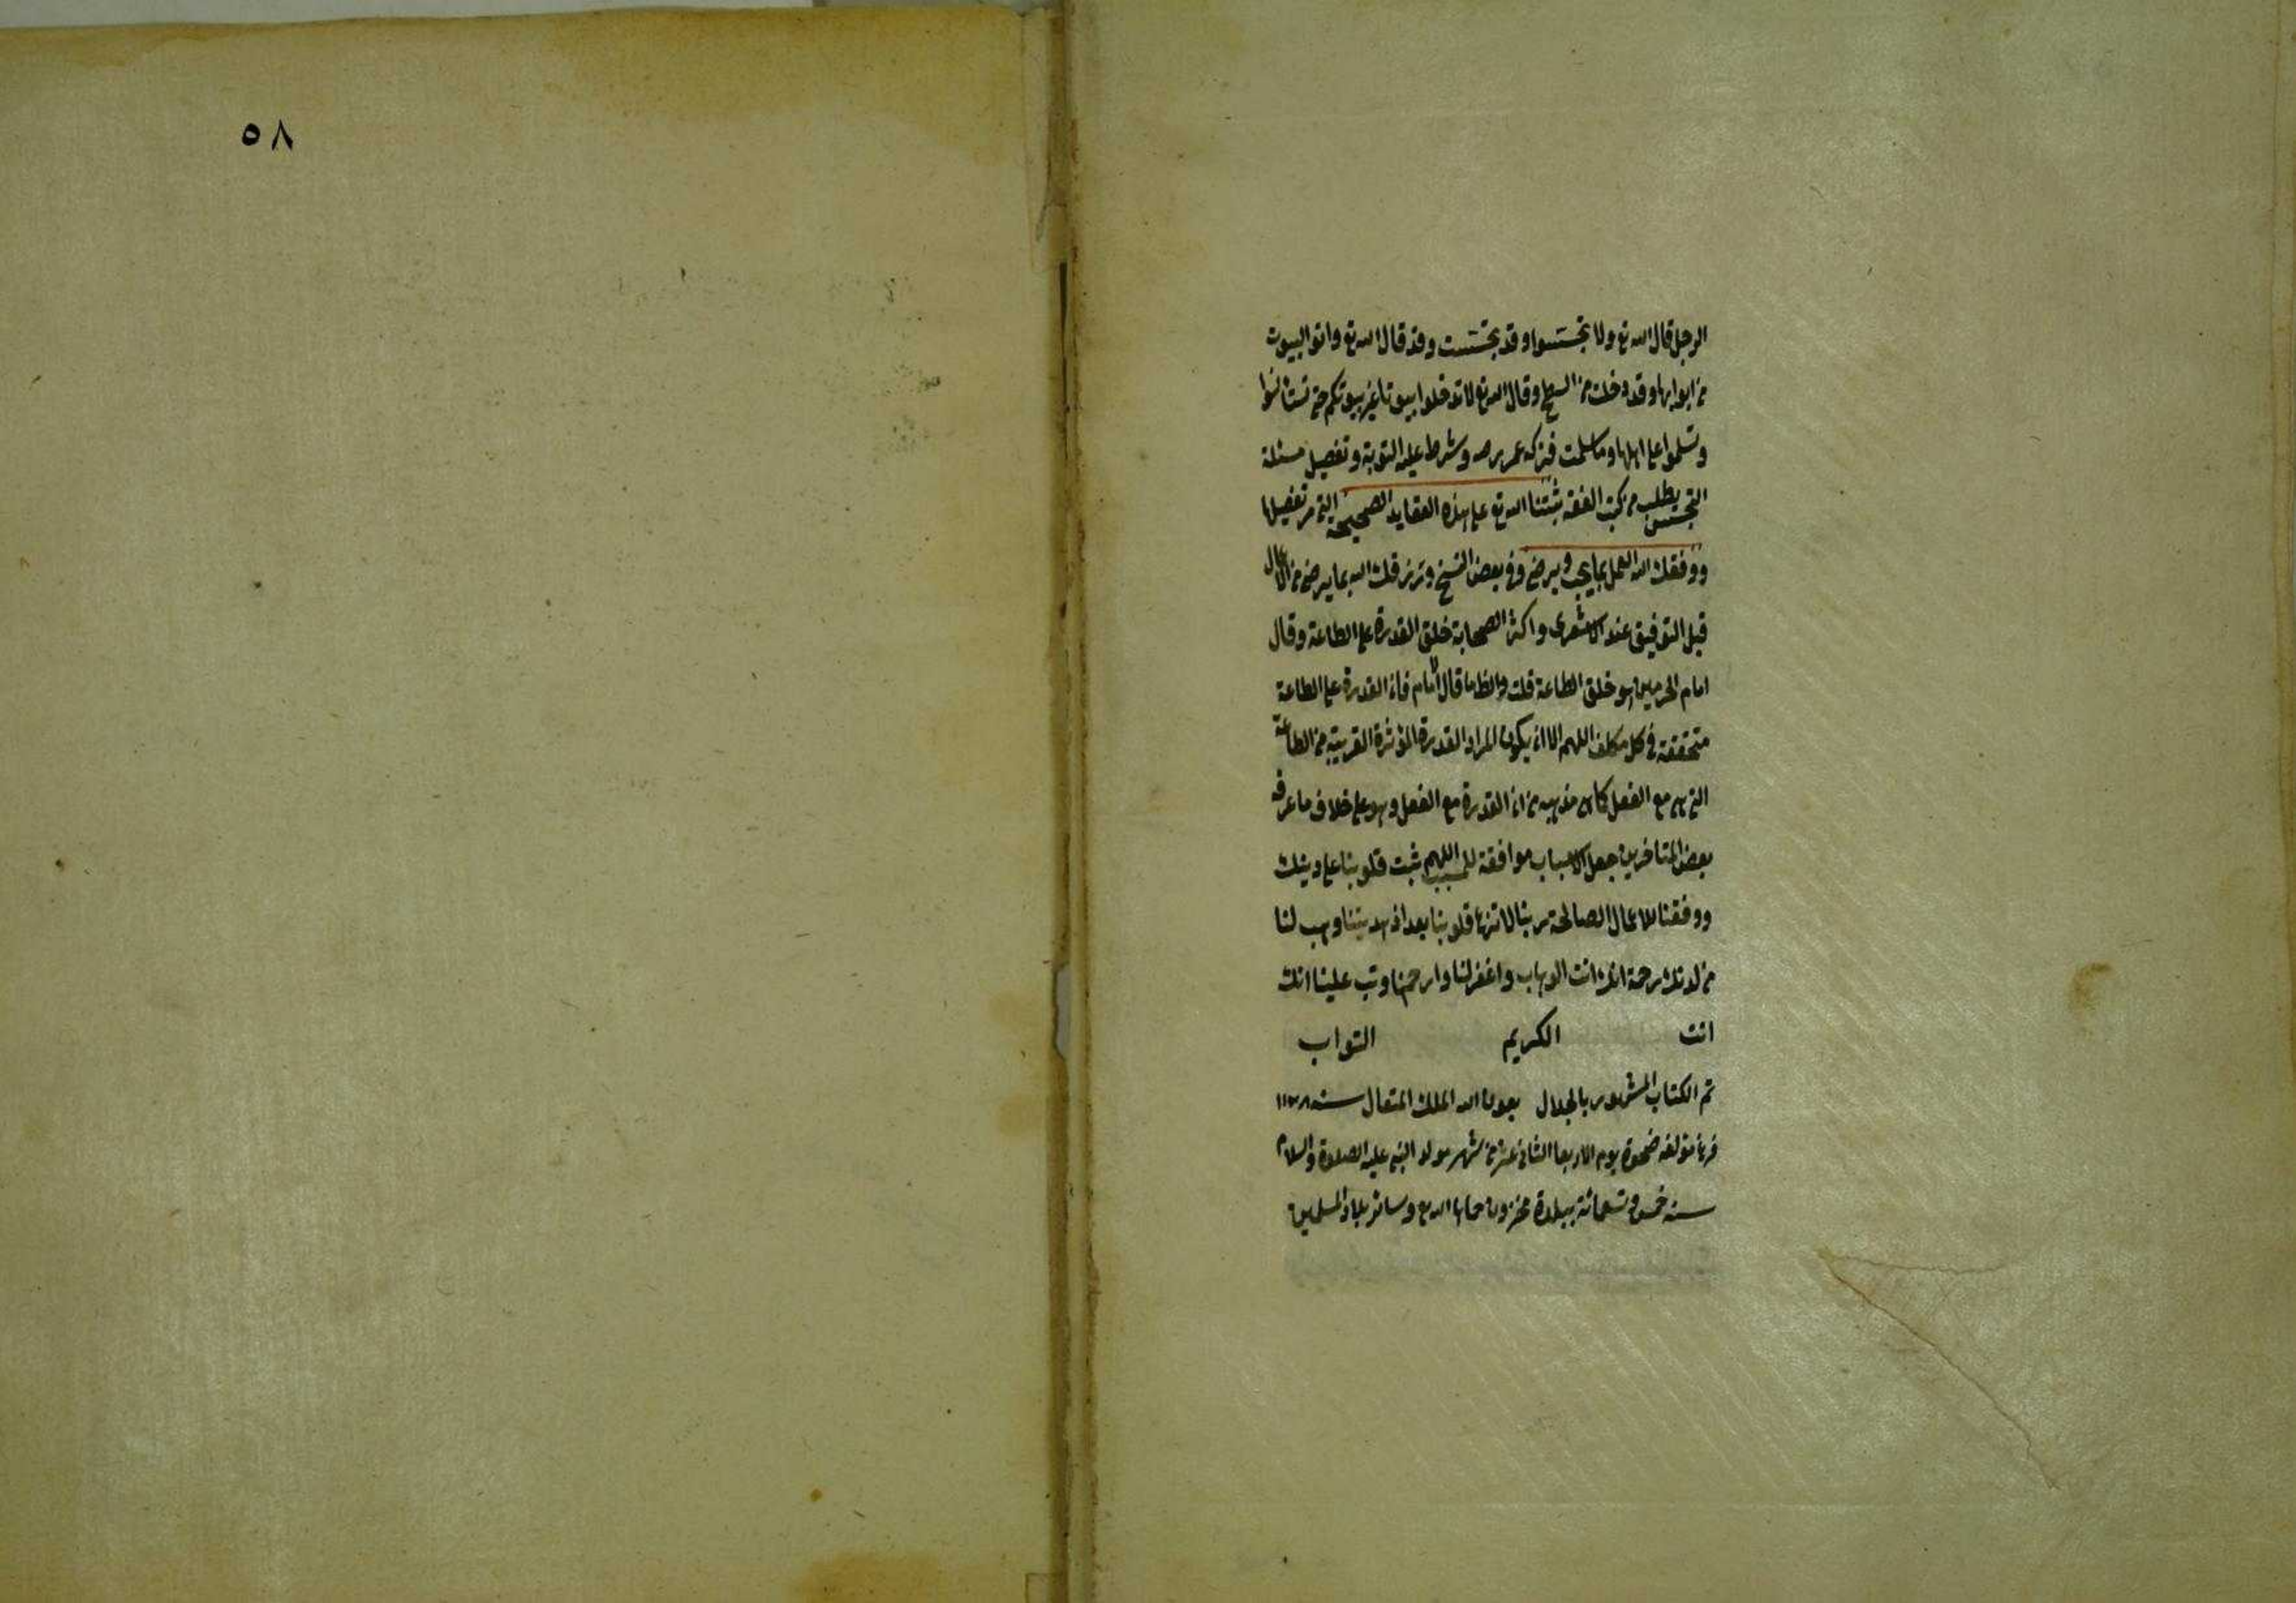 ٥٨
الرجل قال الله تع ولا تجسسوا وقد تجسست وقد قال الله تع واتوا البيوت
من ابوابها وقد دخلت من السطح وقال الله تع لا تدخلوا بيوتا غير بيوتكم حتى تستأنسوا
وتسلموا على اهلها وما سلمت فتركه عمر رضه وشرط عليه التوبة وتفصيل مسئلة
التجسس يطلب من كتب الفقه ثبتنا الله تع على هذه العقايد الصحيحة التي مر تفصيلها
ووفقك الله العمل بما يحب ويرضى وفي بعض النسخ ورزقك الله بما يرضى من الاعمال
قيل التوفيق عند الاشعرى واكثر الصحابة خلق القدرة على الطاعة وقال
امام الحرمين هو خلق الطاعة قلت والظ ما قال الامام فان القدرة على الطاعة
متحققة في كل مكلف اللهم الا ان يكون المراد القدرة المؤثرة القريبة من الطاعة
التي هي مع الفعل كما هو مذهبه من ان القدرة مع الفعل وهو على خلاف ما عرفه
بعض المتاخرين جعل الاسباب موافقة للمسبب اللهم ثبت قلوبنا على دينك
ووفقنا للاعمال الصالحة ربنا لا تزغ قلوبنا بعد اذ هديتنا وهب لنا
من لدنك رحمة انك انت الوهاب واغفر لنا وارحمنا وتب علينا انك
انت الكريم التواب
تم الكتاب المشهور بالجلال بعون الله الملك المتعال سنه
فرغ مؤلفه ضحوة يوم الاربعا الثاني عشر من شهر مولد النبي عليه الصلوة والسلام
سنه خمس وتسعمائة ببلدة حماها الله تع وسائر بلاد المسلمين